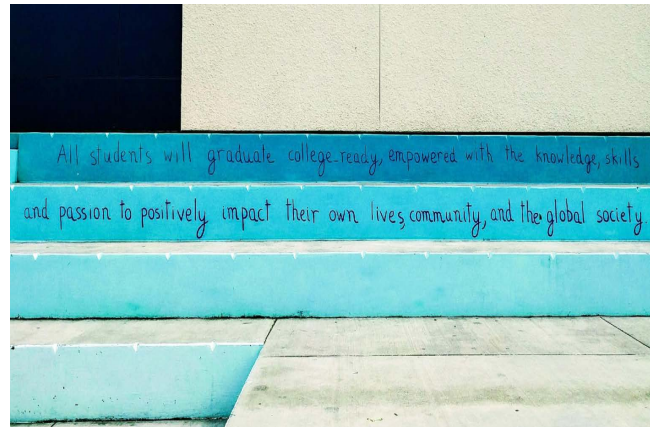 All students will graduate college-ready, empowered with the knowledge, skills
and passion to positively impact their own lives, community, and the global society.